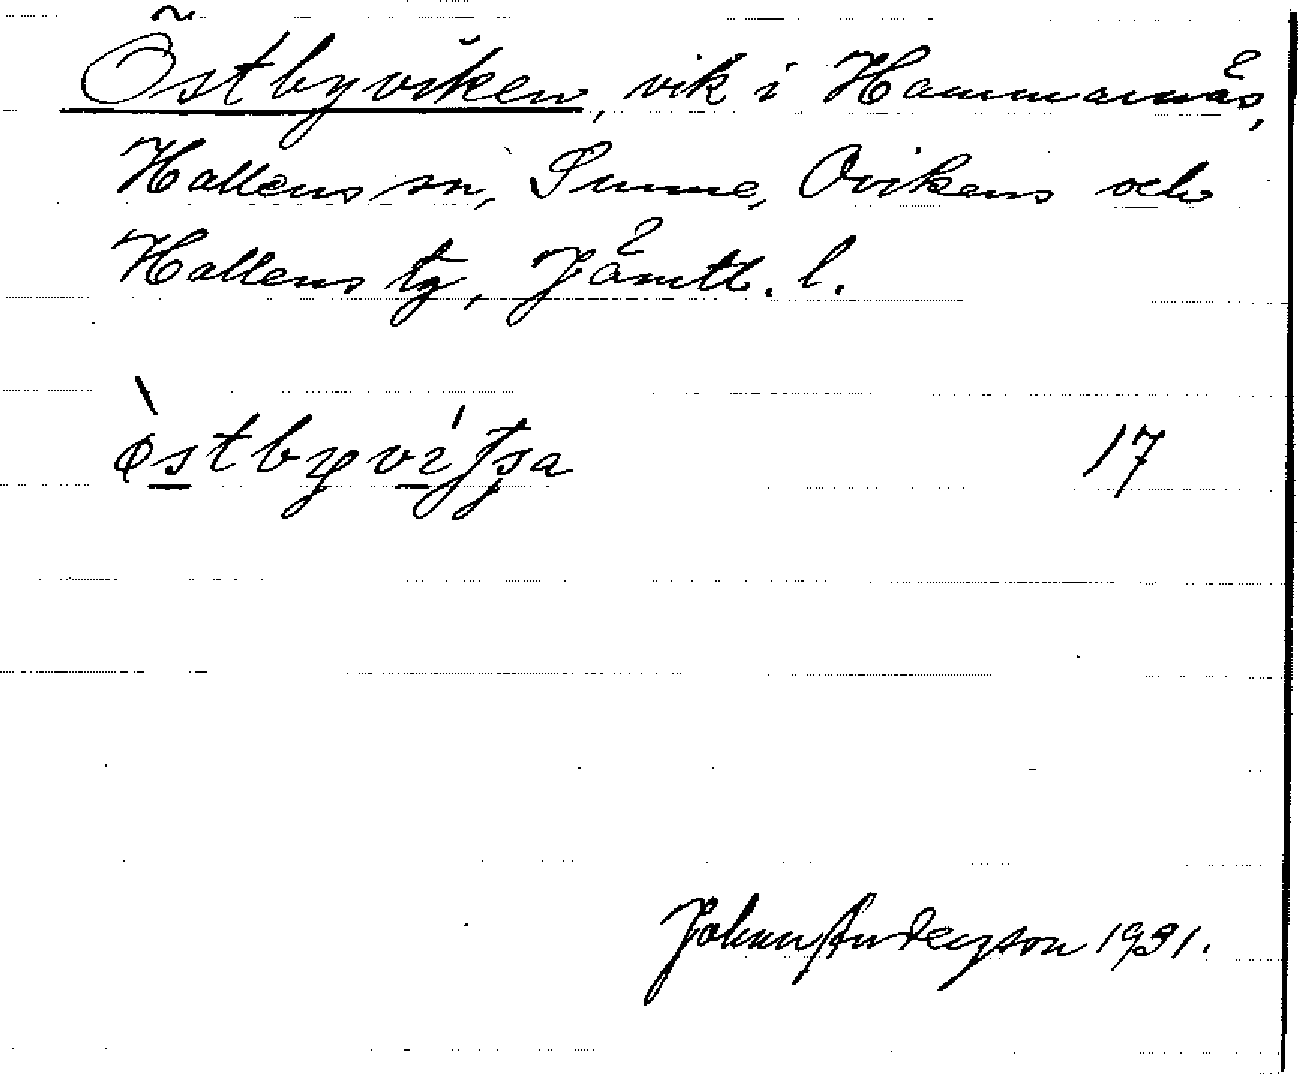 Östbyviken, vik i Hammarnäs,
Hallens sn, Sunne, Ovikens och
Hallens tg, Jämtl. l.
17
Johan Anderzson 1931.